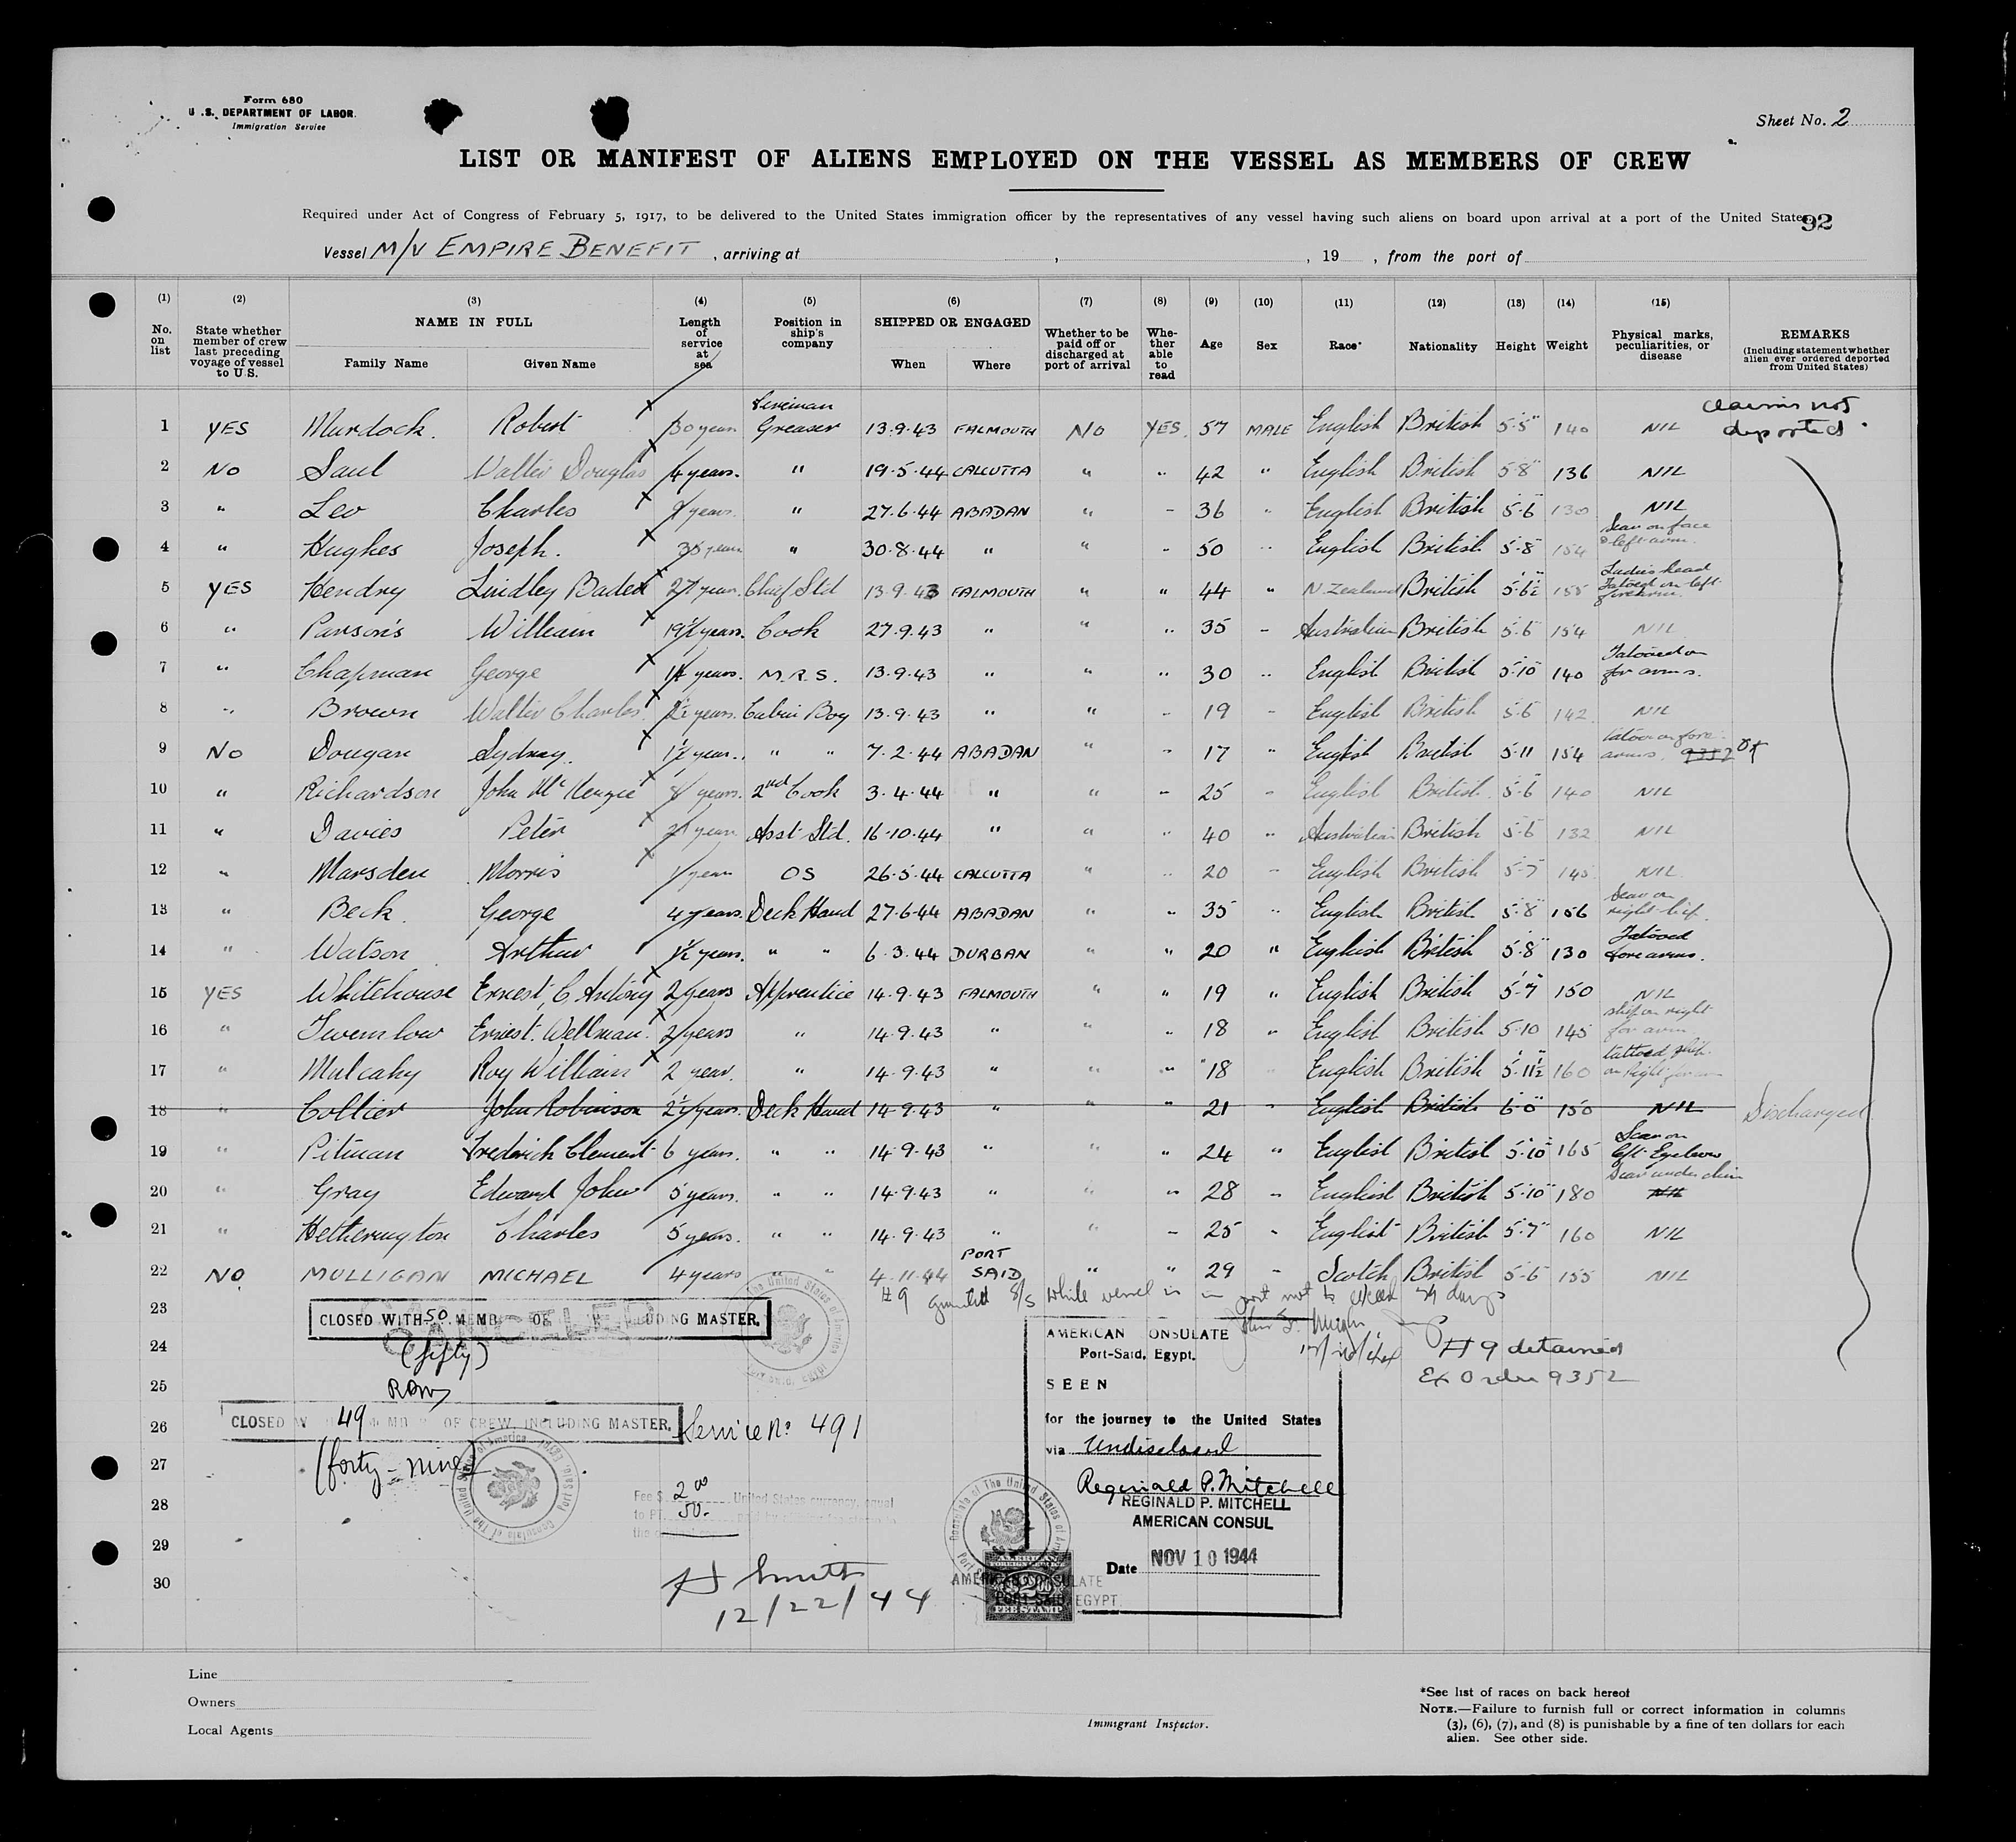 Form 680
U.S. DEPARTMENT OF LABOR
Immigration Service
Sheet No. 2
LIST OR MANIFEST OF ALIENS EMPLOYED ON THE VESSEL AS MEMBERS OF CREW
Required under Act of Congress of February 5, 1917, to be delivered to the United States immigration officer by the representatives of any vessel having such aliens on board upon arrival at a port of the United States
92
Vessel M/V EMPIRE BENEFIT , arriving at , , 19 , from the port of
(1) (2) (3) (4) (5) (6) (7) (8) (9) (10) (11) (12) (13) (14) (15)
No. on list State whether member of crew last preceding voyage of vessel to U.S. NAME IN FULL Family Name Given Name Length of service at sea Position in ship's company SHIPPED OR ENGAGED When Where Whether to be paid off or discharged at port of arrival Whe-ther able to read Age Sex Race* Nationality Height Weight Physical marks, peculiarities, or disease REMARKS (Including statement whether alien ever ordered deported from United States)
1 YES Murdock. Robert 30 years Greaser 13.9.43 FALMOUTH No YES. 57 MALE English British 5-5" 140 NIL claims not deported
2 NO Saul Walter Douglas 4 years. " 19.5.44 CALCUTTA " " 42 " English British 5-8" 136 NIL
3 " Leo Charles years. " 27.6.44 ABADAN " " 36 " English British 5-6 130 NIL
4 " Hughes Joseph. 35 years " 30.8.44 " " " 50 " English British 5-8" 154 Scar on face & left arm.
5 YES Hendry Lindley Baden 27 years. Chief Std 13.9.43 FALMOUTH " " 44 " N. Zealand British 5-6½ 155 Ladies head Tatooed on left forearm.
6 " Parson's William 19½ years. Cook 27.9.43 " " " 35 " Australian British 5-6 154 NIL
7 " Chapman George 14 years. M.R.S. 13.9.43 " " " 30 " English British 5-10 140 Tatooed on for arms.
8 " Brown Walter Charles years. Cabin Boy 13.9.43 " " " 19 " English British 5-6 142 NIL
9 NO Dougan Sydney. 1½ year. " " 7.2.44 ABADAN " " 17 " English British 5-11 154 tatoo on fore arms. 9352
10 " Richardson John McKenzie 8 years. 2nd Cook 3.4.44 " " " 25 " English British 5-6 140 NIL
11 " Davies Peter years Asst Std. 16.10.44 " " " 40 " Australian British 5-6 132 NIL
12 " Marsden Morris 1 year OS 26.5.44 CALCUTTA " " 20 " English British 5-7 145 NIL
13 " Beck. George 4 years. Deck Hand 27.6.44 ABADAN " " 35 " English British 5-8" 156 Scar on right
14 " Watson Arthur 1½ years. " " 6.3.44 DURBAN " " 20 " English British 5-8" 130 Tatooed fore arms.
15 YES Whitehouse Ernest, C. Antony 2 years Apprentice 14.9.43 FALMOUTH " " 19 " English British 5-7" 150 NIL
16 " Twemlow Ernest. Wellman 2 years " 14.9.43 " " " 18 " English British 5-10 145 ship on right for arm
17 " Mulcahy Roy William 2 year. " 14.9.43 " " " 18 " English British 5-11½ 160 tattooed ship. on Right
18 " Collier John Robinson 2½ years. Deck Hand 14.9.43 " " " 21 " English British 6-0" 150 NIL Discharged
19 " Pitman Fredrick Clement 6 years. " " 14.9.43 " " " 24 " English British 5-10" 165 Scar on left Eyebrow
20 " Gray Edward John 5 years. " " 14.9.43 " " " 28 " English British 5-10" 180 Scar under chin Nil
21 " Hetherington Charles 5 years. " " 14.9.43 " " " 25 " English British 5-7" 160 NIL
22 NO MULLIGAN MICHAEL 4 years " " 4.11.44 PORT SAID " " 29 " Scotch British 5-6 155 NIL
23 #9 granted S/S while vessel is in port not to exceed 29 days
CLOSED WITH 50 MEMB OF INCLUDING MASTER.
CANCELED
24 (fifty)
12/26/44
#9 detained
25
Ex Order 9352
26 CLOSED W 49 MEMB OF CREW, INCLUDING MASTER. Service No 491
27 (forty-nine)
28 Fee $ 2.00 United States currency, equal
to PT. 50.-
29
30
H Smith
12/22/44
AMERICAN CONSULATE
Port-Said, Egypt.
SEEN
for the journey to the United States
via Undisclosed
Reginald P. Mitchell
REGINALD P. MITCHELL
AMERICAN CONSUL
Date NOV 10 1944
AMERICAN CONSULATE
PORT SAID, EGYPT.
FEE STAMP
Line
Owners
Local Agents
Immigrant Inspector.
*See list of races on back hereof
NOTE.—Failure to furnish full or correct information in columns
(3), (6), (7), and (8) is punishable by a fine of ten dollars for each
alien. See other side.